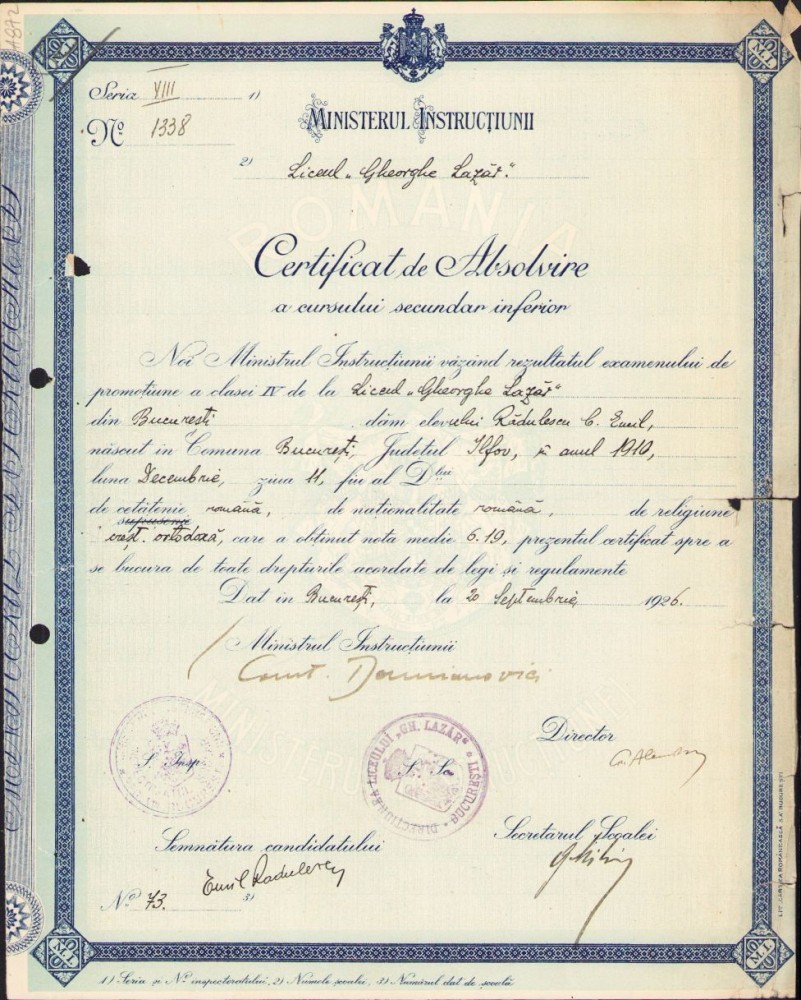 Seria VIII 1)
MINISTERUL INSTRUCȚIUNII
No 1338
2) Liceul „Gheorghe Lazăr".
ROMANIA
Certificat de Absolvire
a cursului secundar inferior
Noi Ministrul Instrucțiunii văzând rezultatul examenului de
promoțiune a clasei IV de la Liceul „Gheorghe Lazăr"
din București, dăm elevului Rădulescu C. Emil,
născut în Comuna București, Județul Ilfov, în anul 1910,
luna Decembrie, ziua 11, fiu al D-lui
de cetățenie română, de naționalitate română, de religiune
supușenie
creșt. ortodoxă, care a obținut nota medie 6.19, prezentul certificat spre a
se bucura de toate drepturile acordate de legi și regulamente
Dat in București, la 20 Septembrie 1926.
Ministrul Instrucțiunii
Const. Dammianovici
Director
S. Insp.
DIRECȚIUNEA LICEULUI „GH. LAZĂR" BUCUREȘTI
Semnătura candidatului
Secretarul Școalei
Emil Radulescu
No 73. 3)
1) Seria și No inspectoratului, 2) Numele școalei, 3) Numărul dat de școală